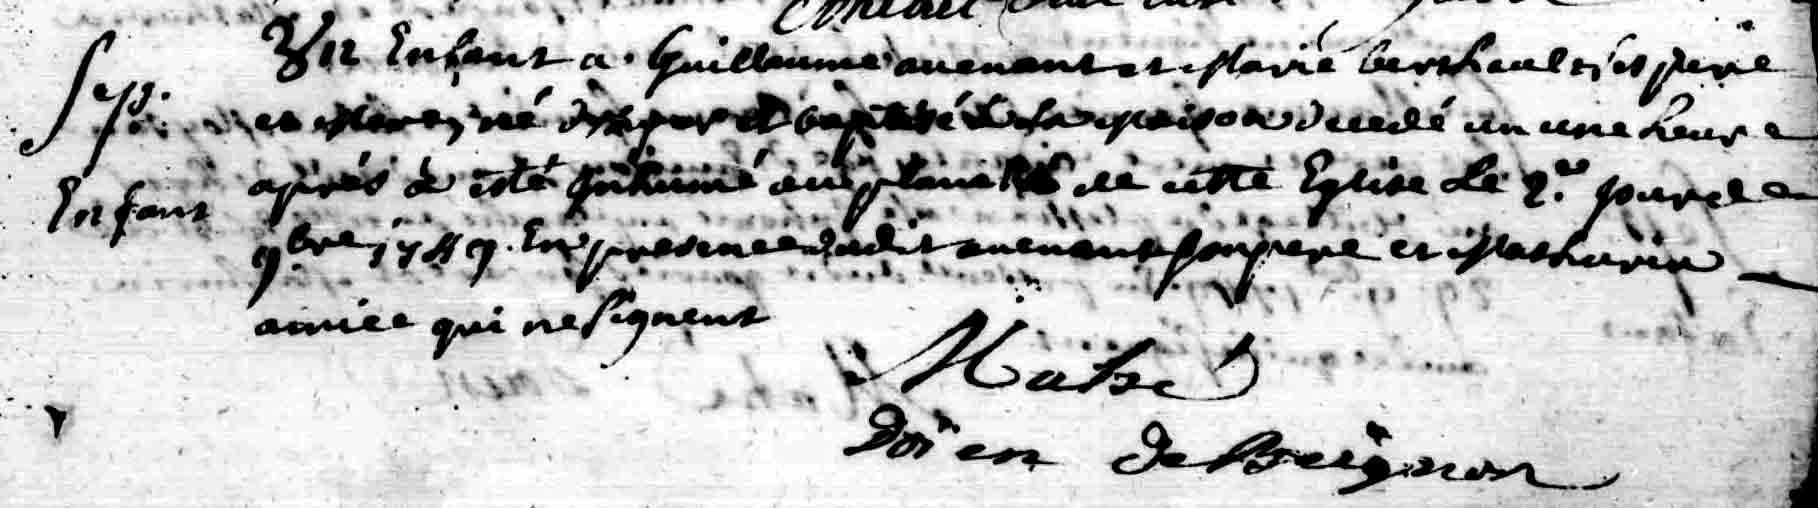 Sep.
Enfant
Un Enfant a Guillaume auenant et Marie berthault ses pere
et mere, né et baptisé a la maison decedé un une heure
aprés a esté Inhumé au placitre de cette Eglise Le 2.e jour de
9bre 17 En presence dudit auenant son pere et Mathurin
amice qui ne signent
Doïen de Beignon